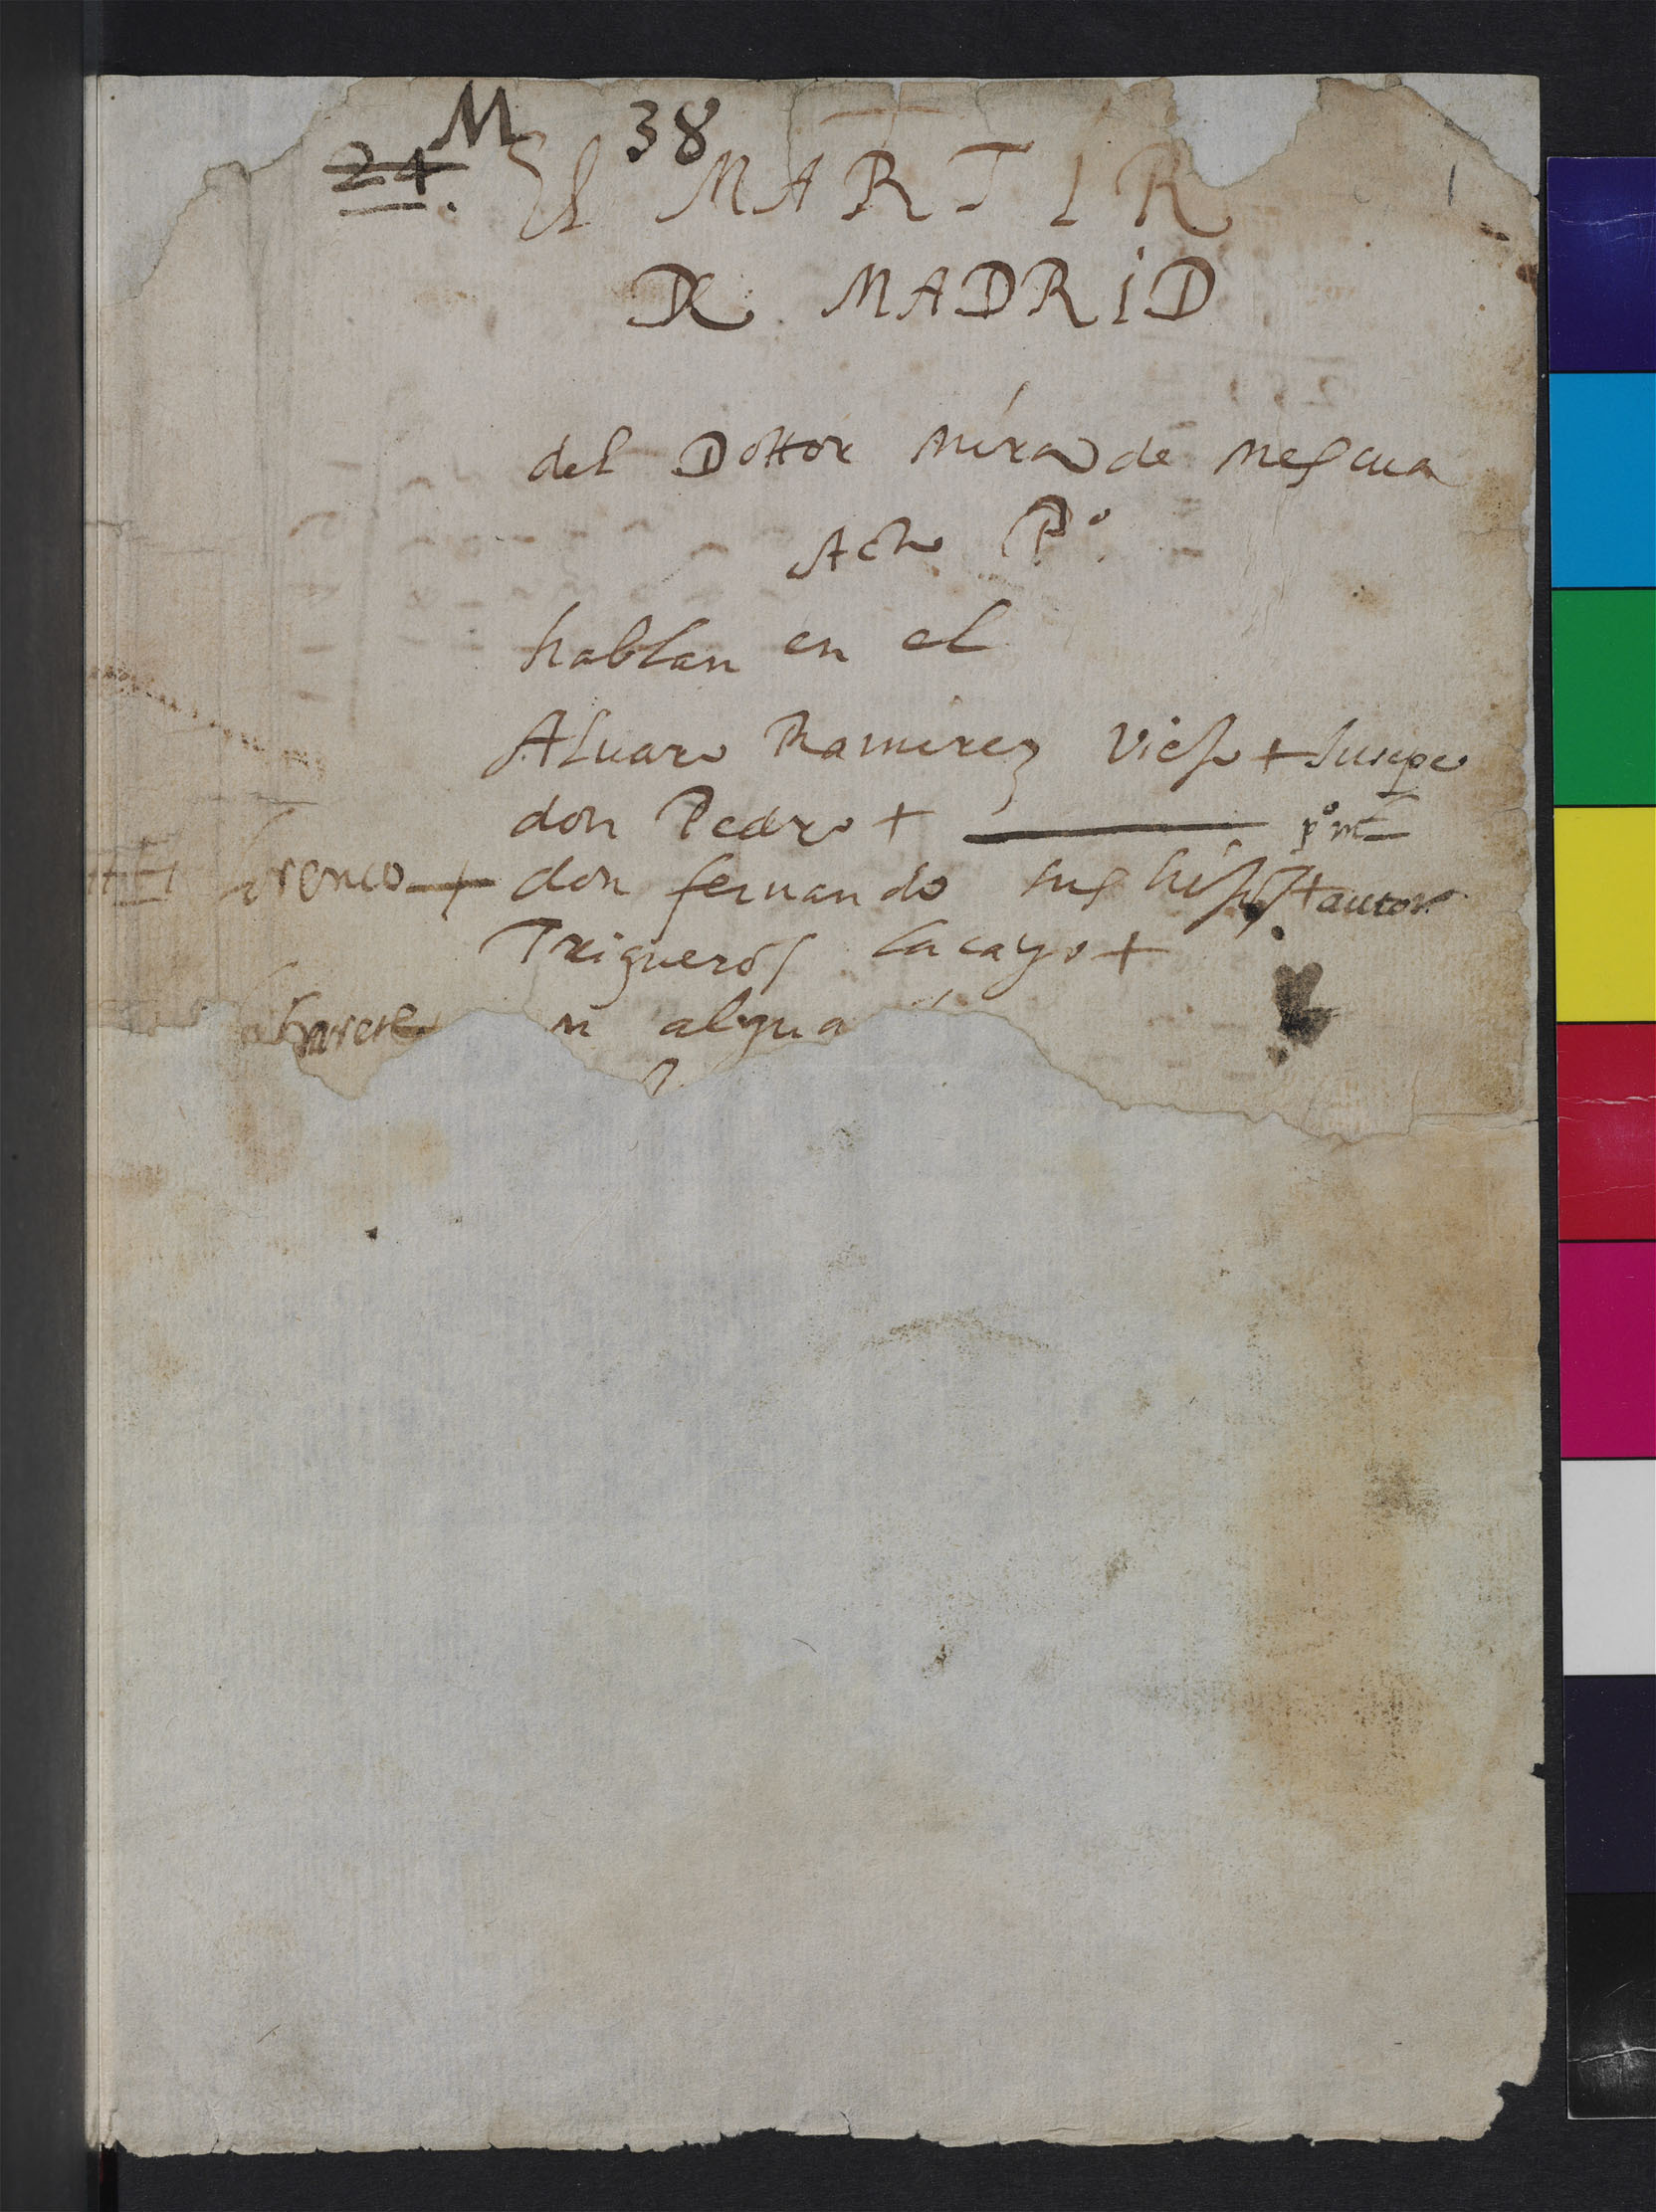 M 38
24. El MARTIR 1
DE MADRID
del Dottor Mira de Mescua
Acto P.º
hablan en el
Aluaro Ramirez Viejo + Jusepe
don Pedro + p.º
lorenco + don fernando sus hijos + autor
Trigueros lacayo +
n algua